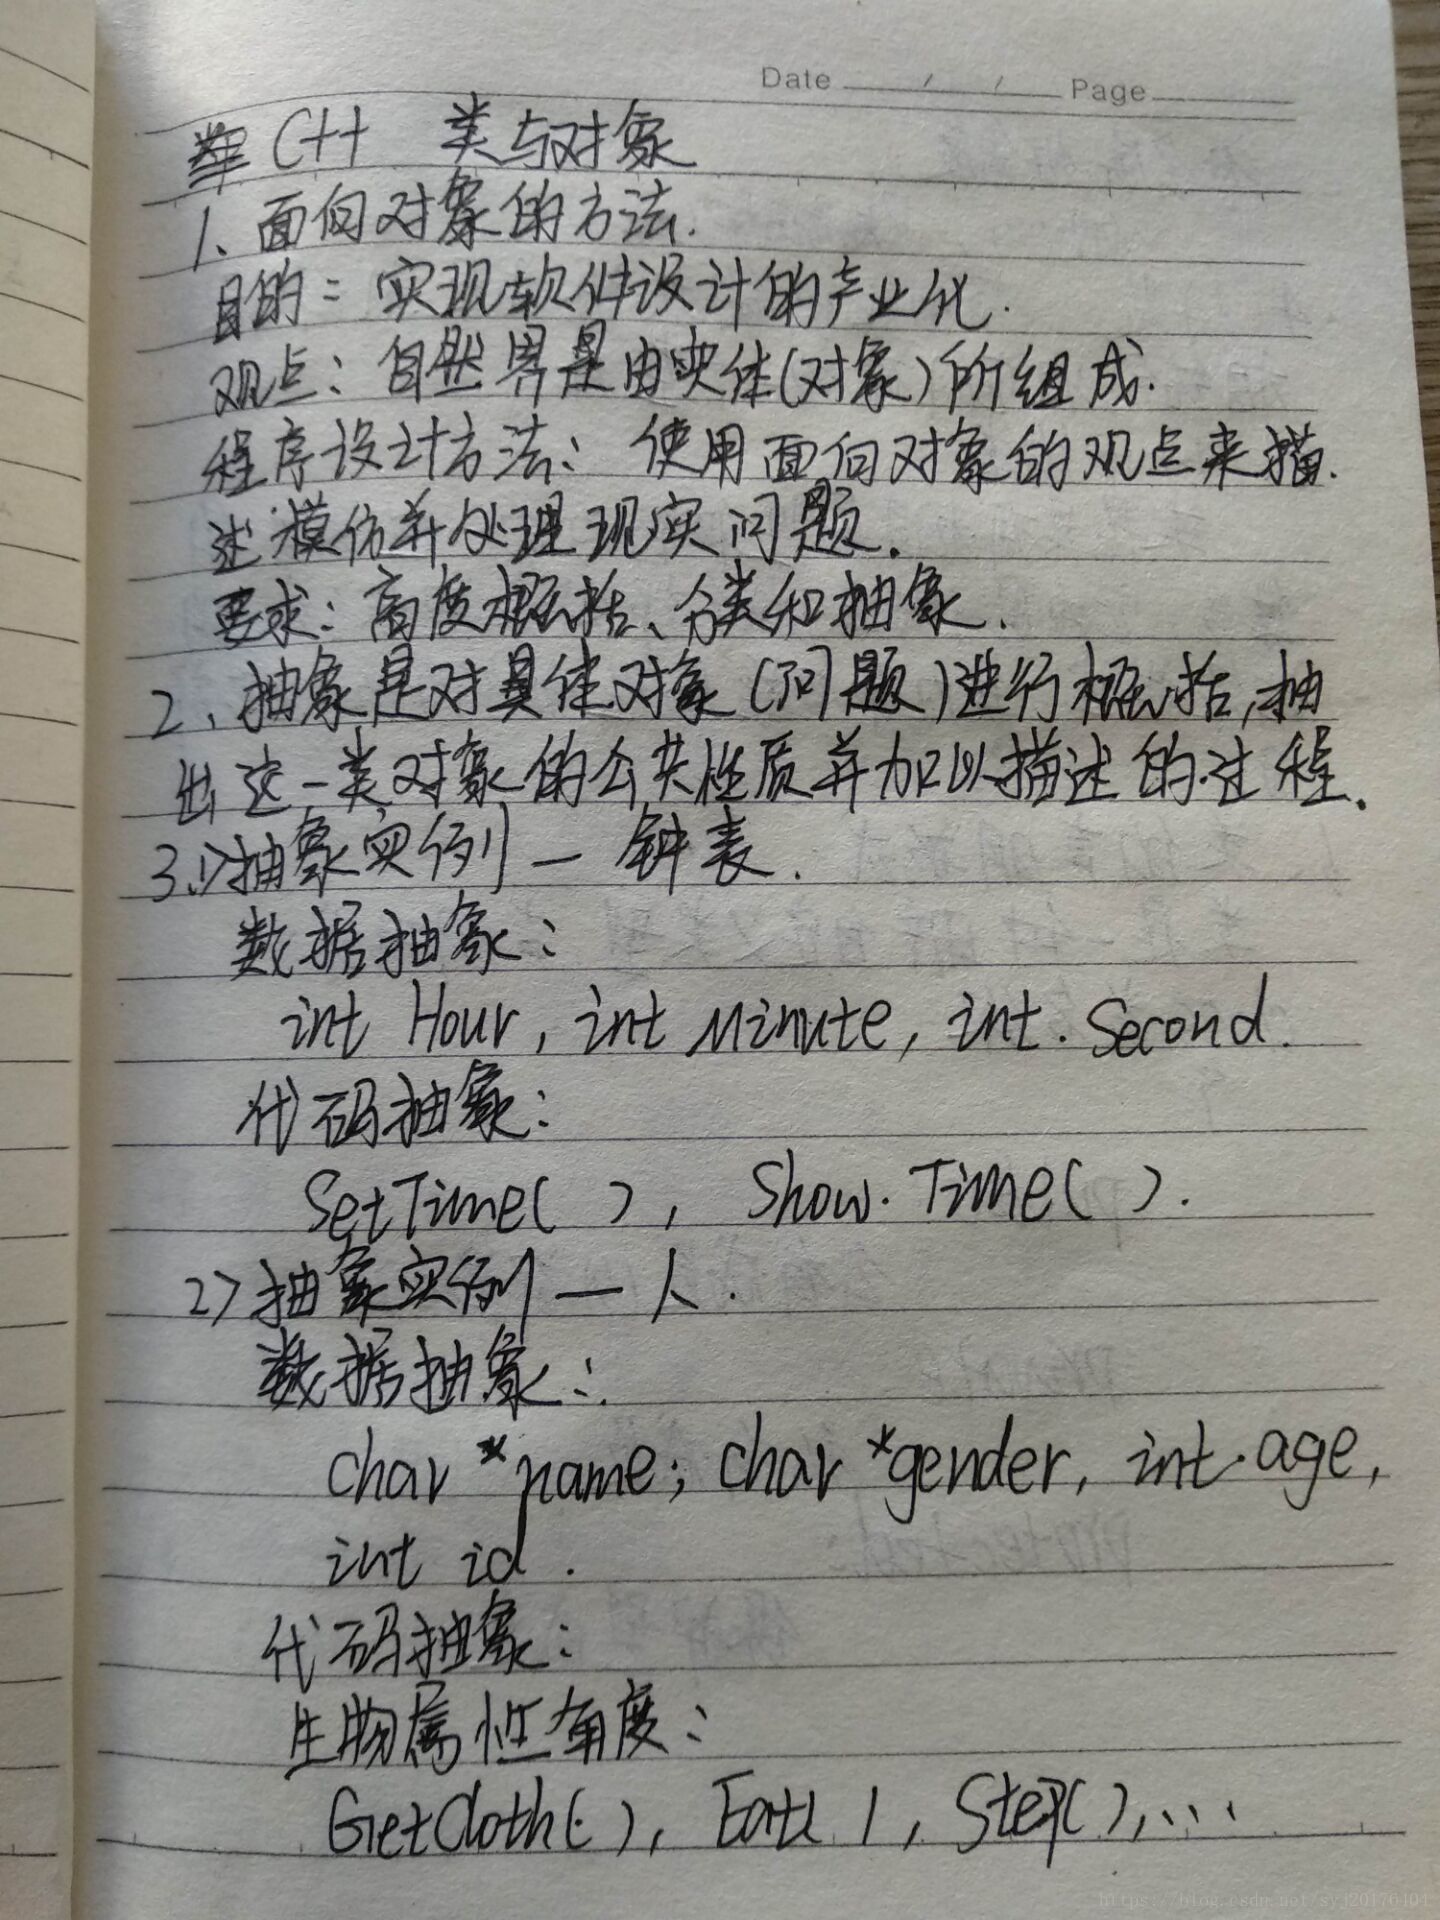 Date / / Page
C++ 类与对象
1、面向对象的方法.
目的: 实现软件设计的产业化.
观点: 自然界是由实体(对象)所组成.
程序设计方法: 使用面向对象的观点来描
述模仿并处理现实问题.
要求: 高度概括、分类和抽象.
2、抽象是对具体对象(问题)进行概括,抽
出这一类对象的公共性质并加以描述的过程.
3.1>抽象实例 — 钟表.
数据抽象:
int Hour, int Minute, int. Second.
代码抽象:
SetTime( ), Show.Time( ).
2>抽象实例 — 人.
数据抽象:
char *name; char *gender, int.age,
int id.
代码抽象:
生物属性角度:
GetCloth( ), Eat( ), Step( ),...
https://blog.csdn.net/syj20176101